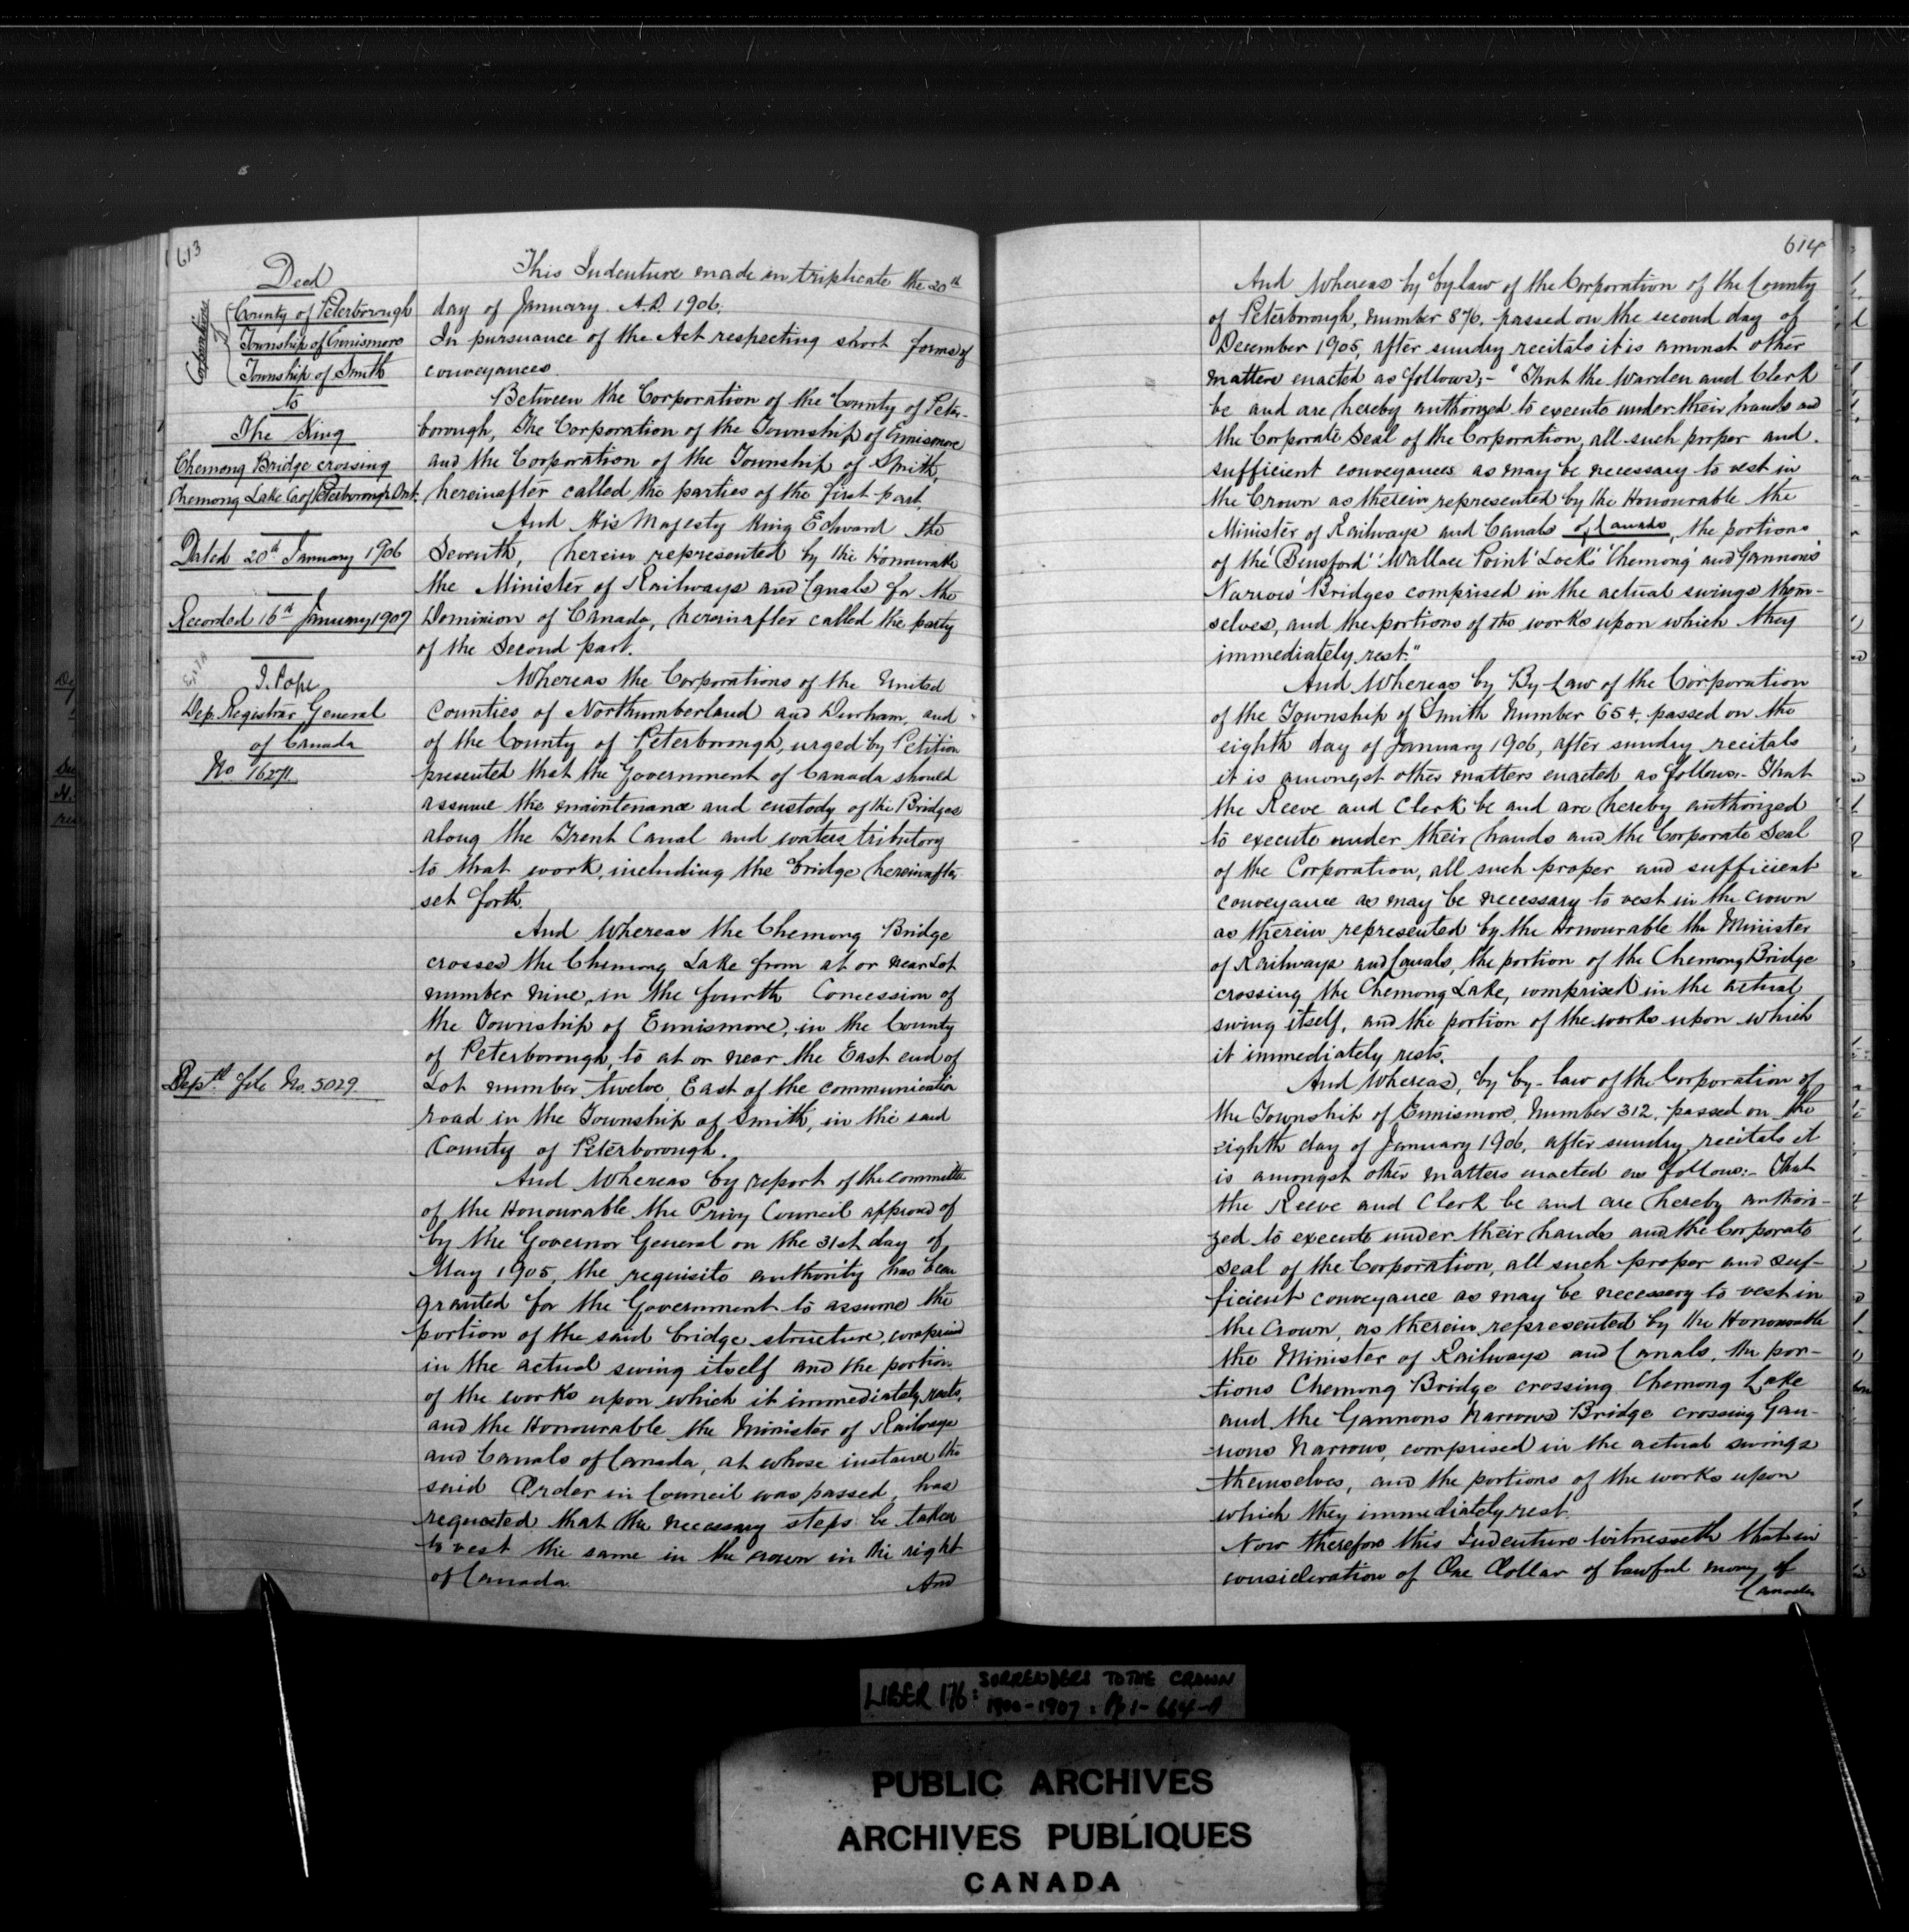 613
Deed
Corporations of
County of Peterborough
Township of Ennismore
Township of Smith
to
The King
Chemong Bridge crossing
Chemong Lake Co. of Peterborough Ont.
Dated 20th January 1906
Recorded 16th January 1907
J. Pope
Dep. Registrar General
of Canada
No 16271.
Deptl. File No. 5029
This Indenture made in triplicate the 20th
day of January A.D. 1906.
In pursuance of the Act respecting short forms of
conveyances
Between the Corporation of the County of Peter-
borough, The Corporation of the Township of Ennismore
and the Corporation of the Township of Smith,
hereinafter called the parties of the first part.
And His Majesty King Edward the
Seventh, herein represented by the Honourable
the Minister of Railways and Canals for the
Dominion of Canada, hereinafter called the party
of the Second part.
Whereas the Corporations of the United
Counties of Northumberland and Durham, and
of the County of Peterborough, urged by Petition
presented that the Government of Canada should
assume the maintenance and custody of the Bridges
along the Trent Canal and waters tributory
to that work, including the bridge hereinafter
set forth.
And Whereas the Chemong Bridge
crosses the Chemong Lake from at or near Lot
number nine, in the fourth Concession of
the Township of Ennismore, in the County
of Peterborough, to at or near the East end of
Lot number twelve, East of the communication
road in the Township of Smith, in the said
County of Peterborough.
And Whereas by report of the committee
of the Honourable the Privy Council approved of
by the Governor General on the 31st day of
May 1905, the requisite authority has been
granted for the Government to assume the
portion of the said bridge structure, comprised
in the actual swing itself and the portion
of the works upon which it immediately rests,
and the Honourable the Minister of Railways
and Canals of Canada, at whose instance the
said Order in Council was passed, has
requested that the necessary steps be taken
to vest the same in the crown in the right
of Canada.
And
614
And Whereas by bylaw of the Corporation of the County
of Peterborough, number 876, passed on the second day of
December 1905, after sundry recitals it is amonst other
matters enacted as follows:- "That the Warden and Clerk
be and are hereby authorized to execute under their hands and
the Corporate Seal of the Corporation, all such proper and
sufficient conveyances as may be necessary to vest in
the Crown as therein represented by the Honourable the
Minister of Railways and Canals of Canada, the portions
of the 'Bensford' 'Wallace Point' 'Locks' 'Chemong' and 'Gannon's
Narrows' Bridges comprised in the actual swings them-
selves, and the portions of the works upon which they
immediately rest."
And Whereas by By-Law of the Corporation
of the Township of Smith Number 654, passed on the
eighth day of January 1906, after sundry recitals
it is amongst other matters enacted as follows:- That
the Reeve and Clerk be and are hereby authorized
to execute under their hands and the Corporate Seal
of the Corporation, all such proper and sufficient
conveyance as may be necessary to vest in the crown
as therein represented by the Honourable the Minister
of Railways and Canals, the portion of the Chemong Bridge
crossing the Chemong Lake, comprised in the actual
swing itself, and the portion of the works upon which
it immediately rests.
And Whereas, by by-law of the Corporation of
the Township of Ennismore, Number 312, passed on the
eighth day of January 1906, after sundry recitals it
is amongst other matters enacted as follows:- That
the Reeve and Clerk be and are hereby authori-
zed to execute under their hands and the Corporate
Seal of the Corporation, all such proper and suf-
ficient conveyance as may be necessary to vest in
the Crown, as therein represented by the Honourable
the Minister of Railways and Canals, the por-
tions Chemong Bridge crossing Chemong Lake
and the Gannons Narrows Bridge crossing Gan-
nons Narrows, comprised in the actual swings
themselves, and the portions of the works upon
which they immediately rest.
Now therefore this Indenture witnesseth that in
consideration of One Dollar of lawful money of
Canada
LIBER 176: SURRENDERS TO THE CROWN
1900-1907: Pp 1-664-A
PUBLIC ARCHIVES
ARCHIVES PUBLIQUES
CANADA